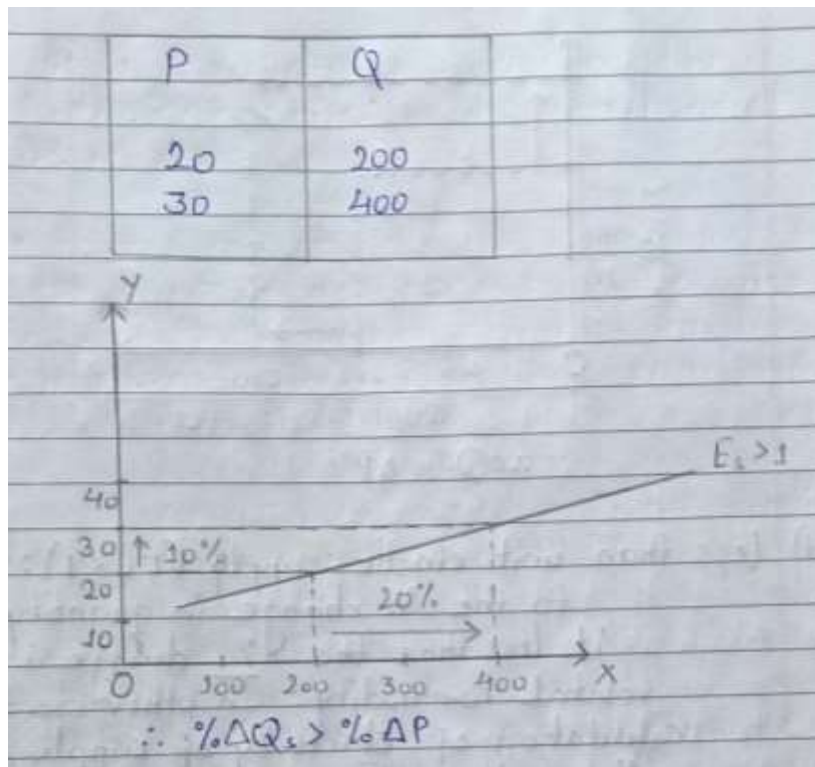 P Q
20 200
30 400
Y
Es > 1
40
30 ↑ 10%
20 20%
10
0 100 200 300 400 X
∴ %ΔQs > %ΔP